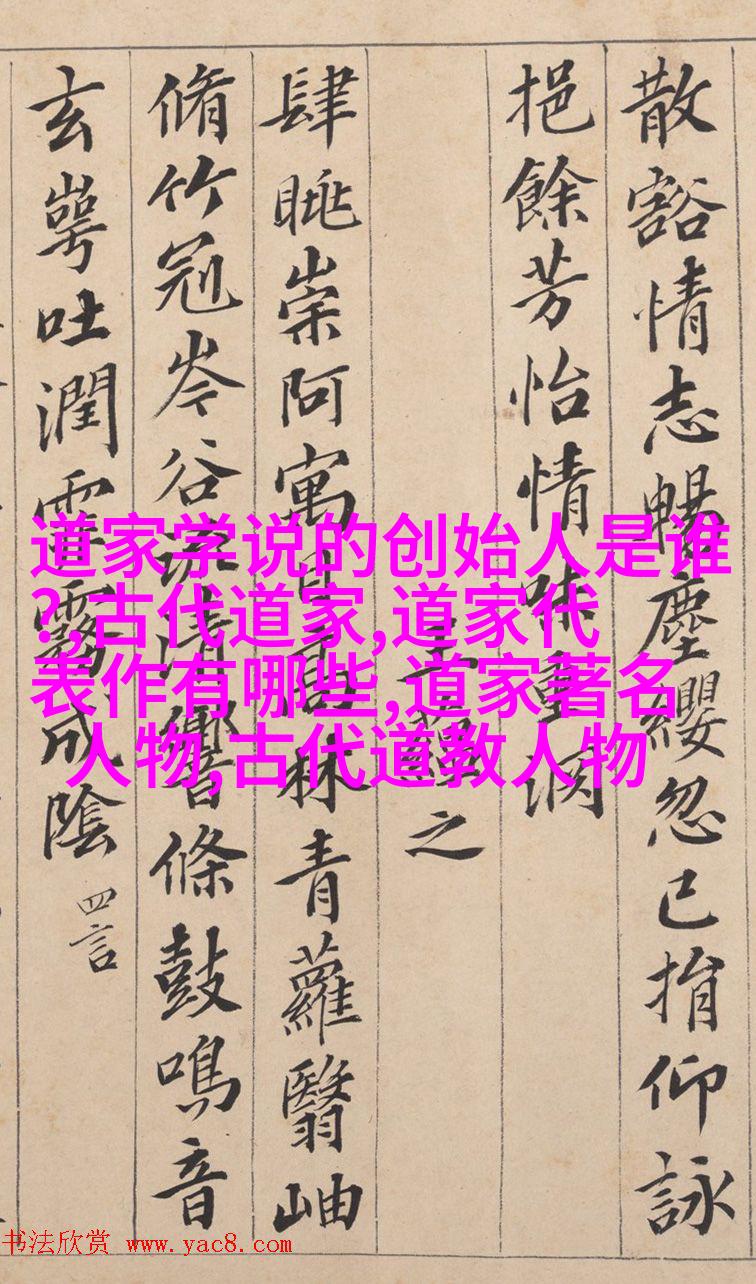 散豁情志暢塵纓忽已捐仰詠
挹餘芳怡情味重淵
王蘊之
肆眺崇阿寓目高林青蘿翳岫
脩竹冠岑谷流清響條鼓鳴音
玄崿吐潤霏霧成陰 四言
道家学说的创始人是谁
?,古代道家,道家代
表作有哪些,道家著名
人物,古代道教人物
书法欣赏 www.yac8.com